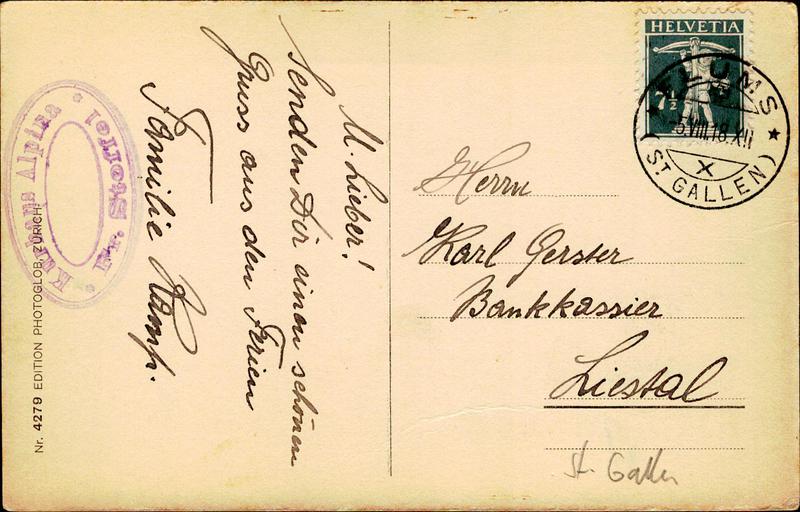 M. Lieber!
Senden Dir einen schönen
Gruss aus den Ferien
Familie Kamp.
Kurhaus Alpina
Nr. 4279 EDITION PHOTOGLOB ZÜRICH
HELVETIA
7½
FLUMS
5.VIII.18.XII
X
(ST GALLEN)
Herrn
Karl Gerster
Bankkassier
Liestal
St. Gallen